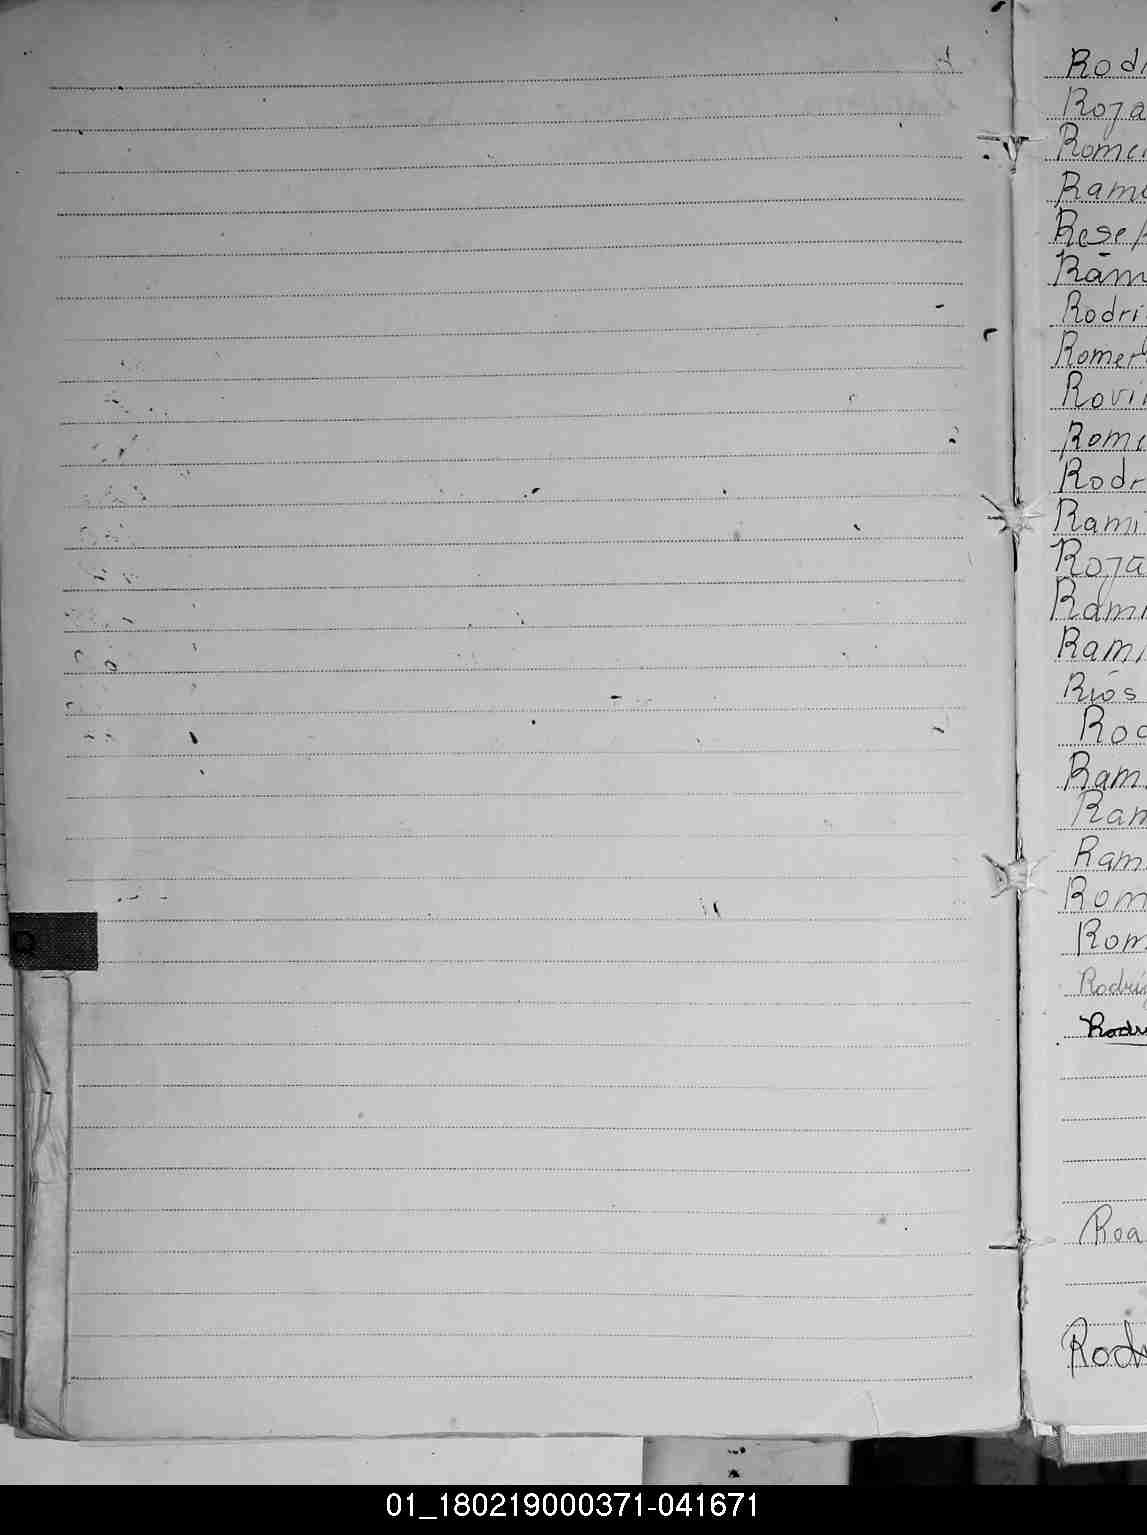 Rodr
Roja
Rome
Rami
Rese
Ram
Rodri
Romer
Rovi
Rome
Rodr
Rami
Roja
Rami
Rami
Ríos
Rod
Ram
Ram
Ram
Rom
Rom
Rodrig
Rodri
Roa
Rodr
01_180219000371-041671